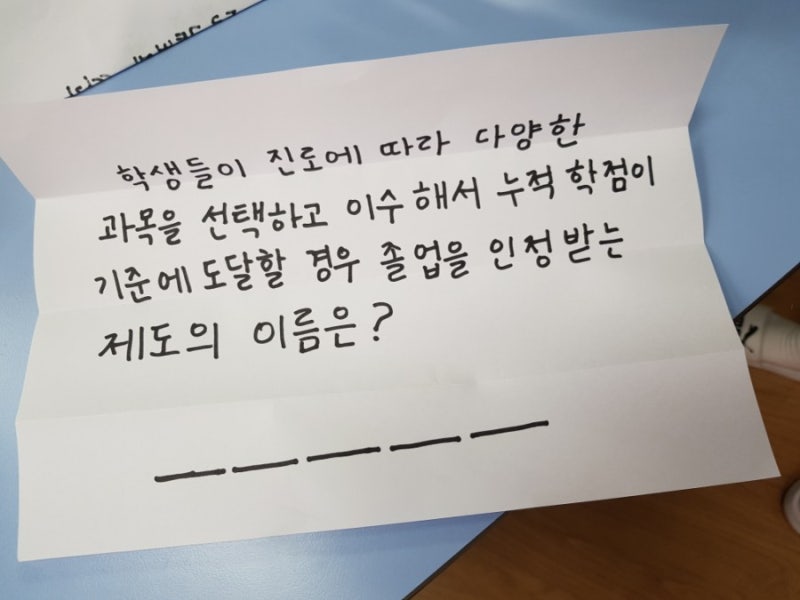 학생들이 진로에 따라 다양한
과목을 선택하고 이수해서 누적 학점이
기준에 도달할 경우 졸업을 인정받는
제도의 이름은?